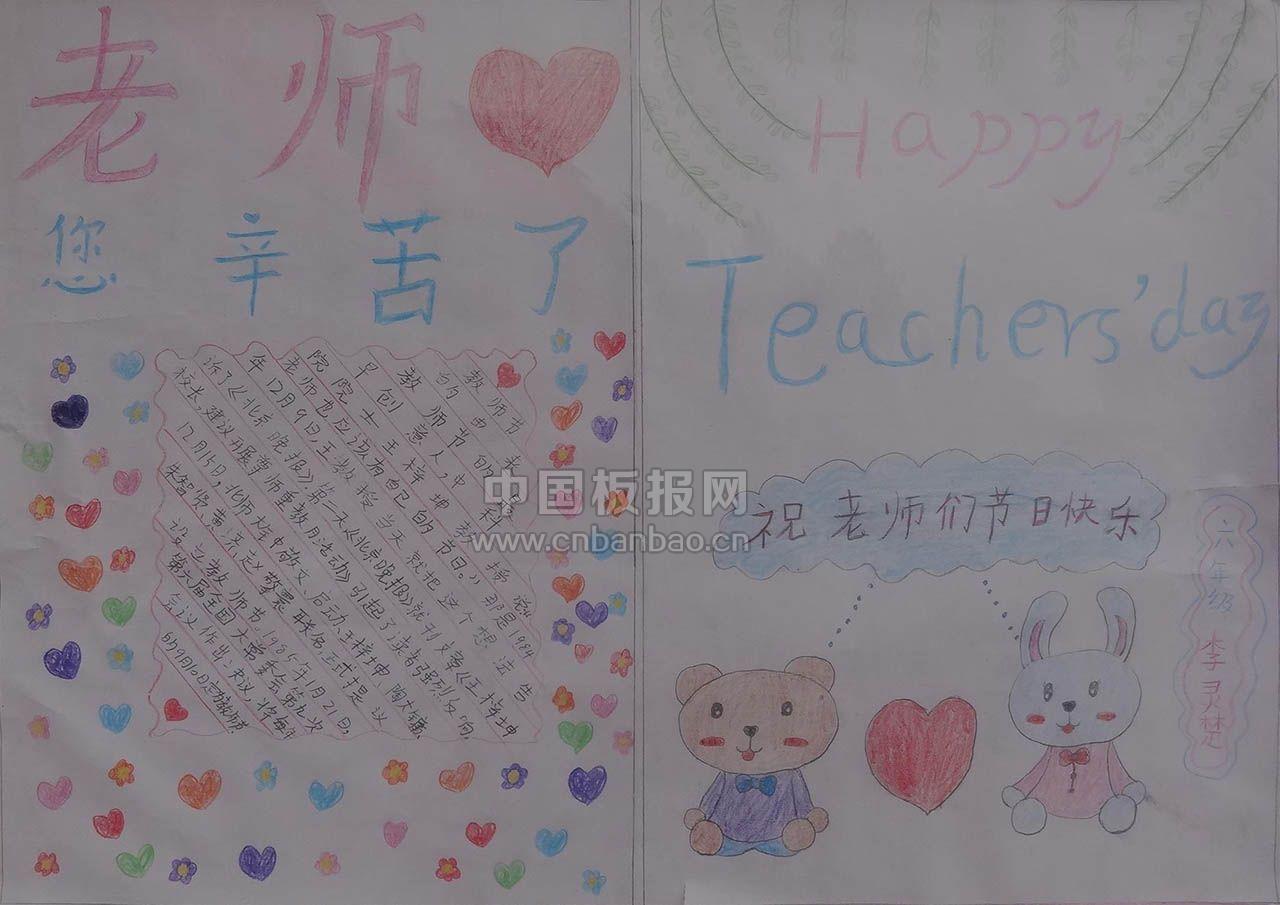 老师
您辛苦了
教师节的由来
教师节的
早创意人,中科
院院士王梓坤教授
老师也应该有自己的节日。那是1984
年12月9日,王教授当天就把这个想法告
诉了《北京晚报》第二天《北京晚报》就刊文章《王梓坤
校长,建议开展尊师重教月活动》引起了读者强烈反响,
12月15日,北师大
朱智贤、黄济、赵
设立教师节。1985年1月21日,
第六届全国人大常委会第九次
会议作出决议,将每年
的9月10日定为教师节
Happy
Teachers'day
祝老师们节日快乐
六年级 李灵楚
中国板报网
www.cnbanbao.cn